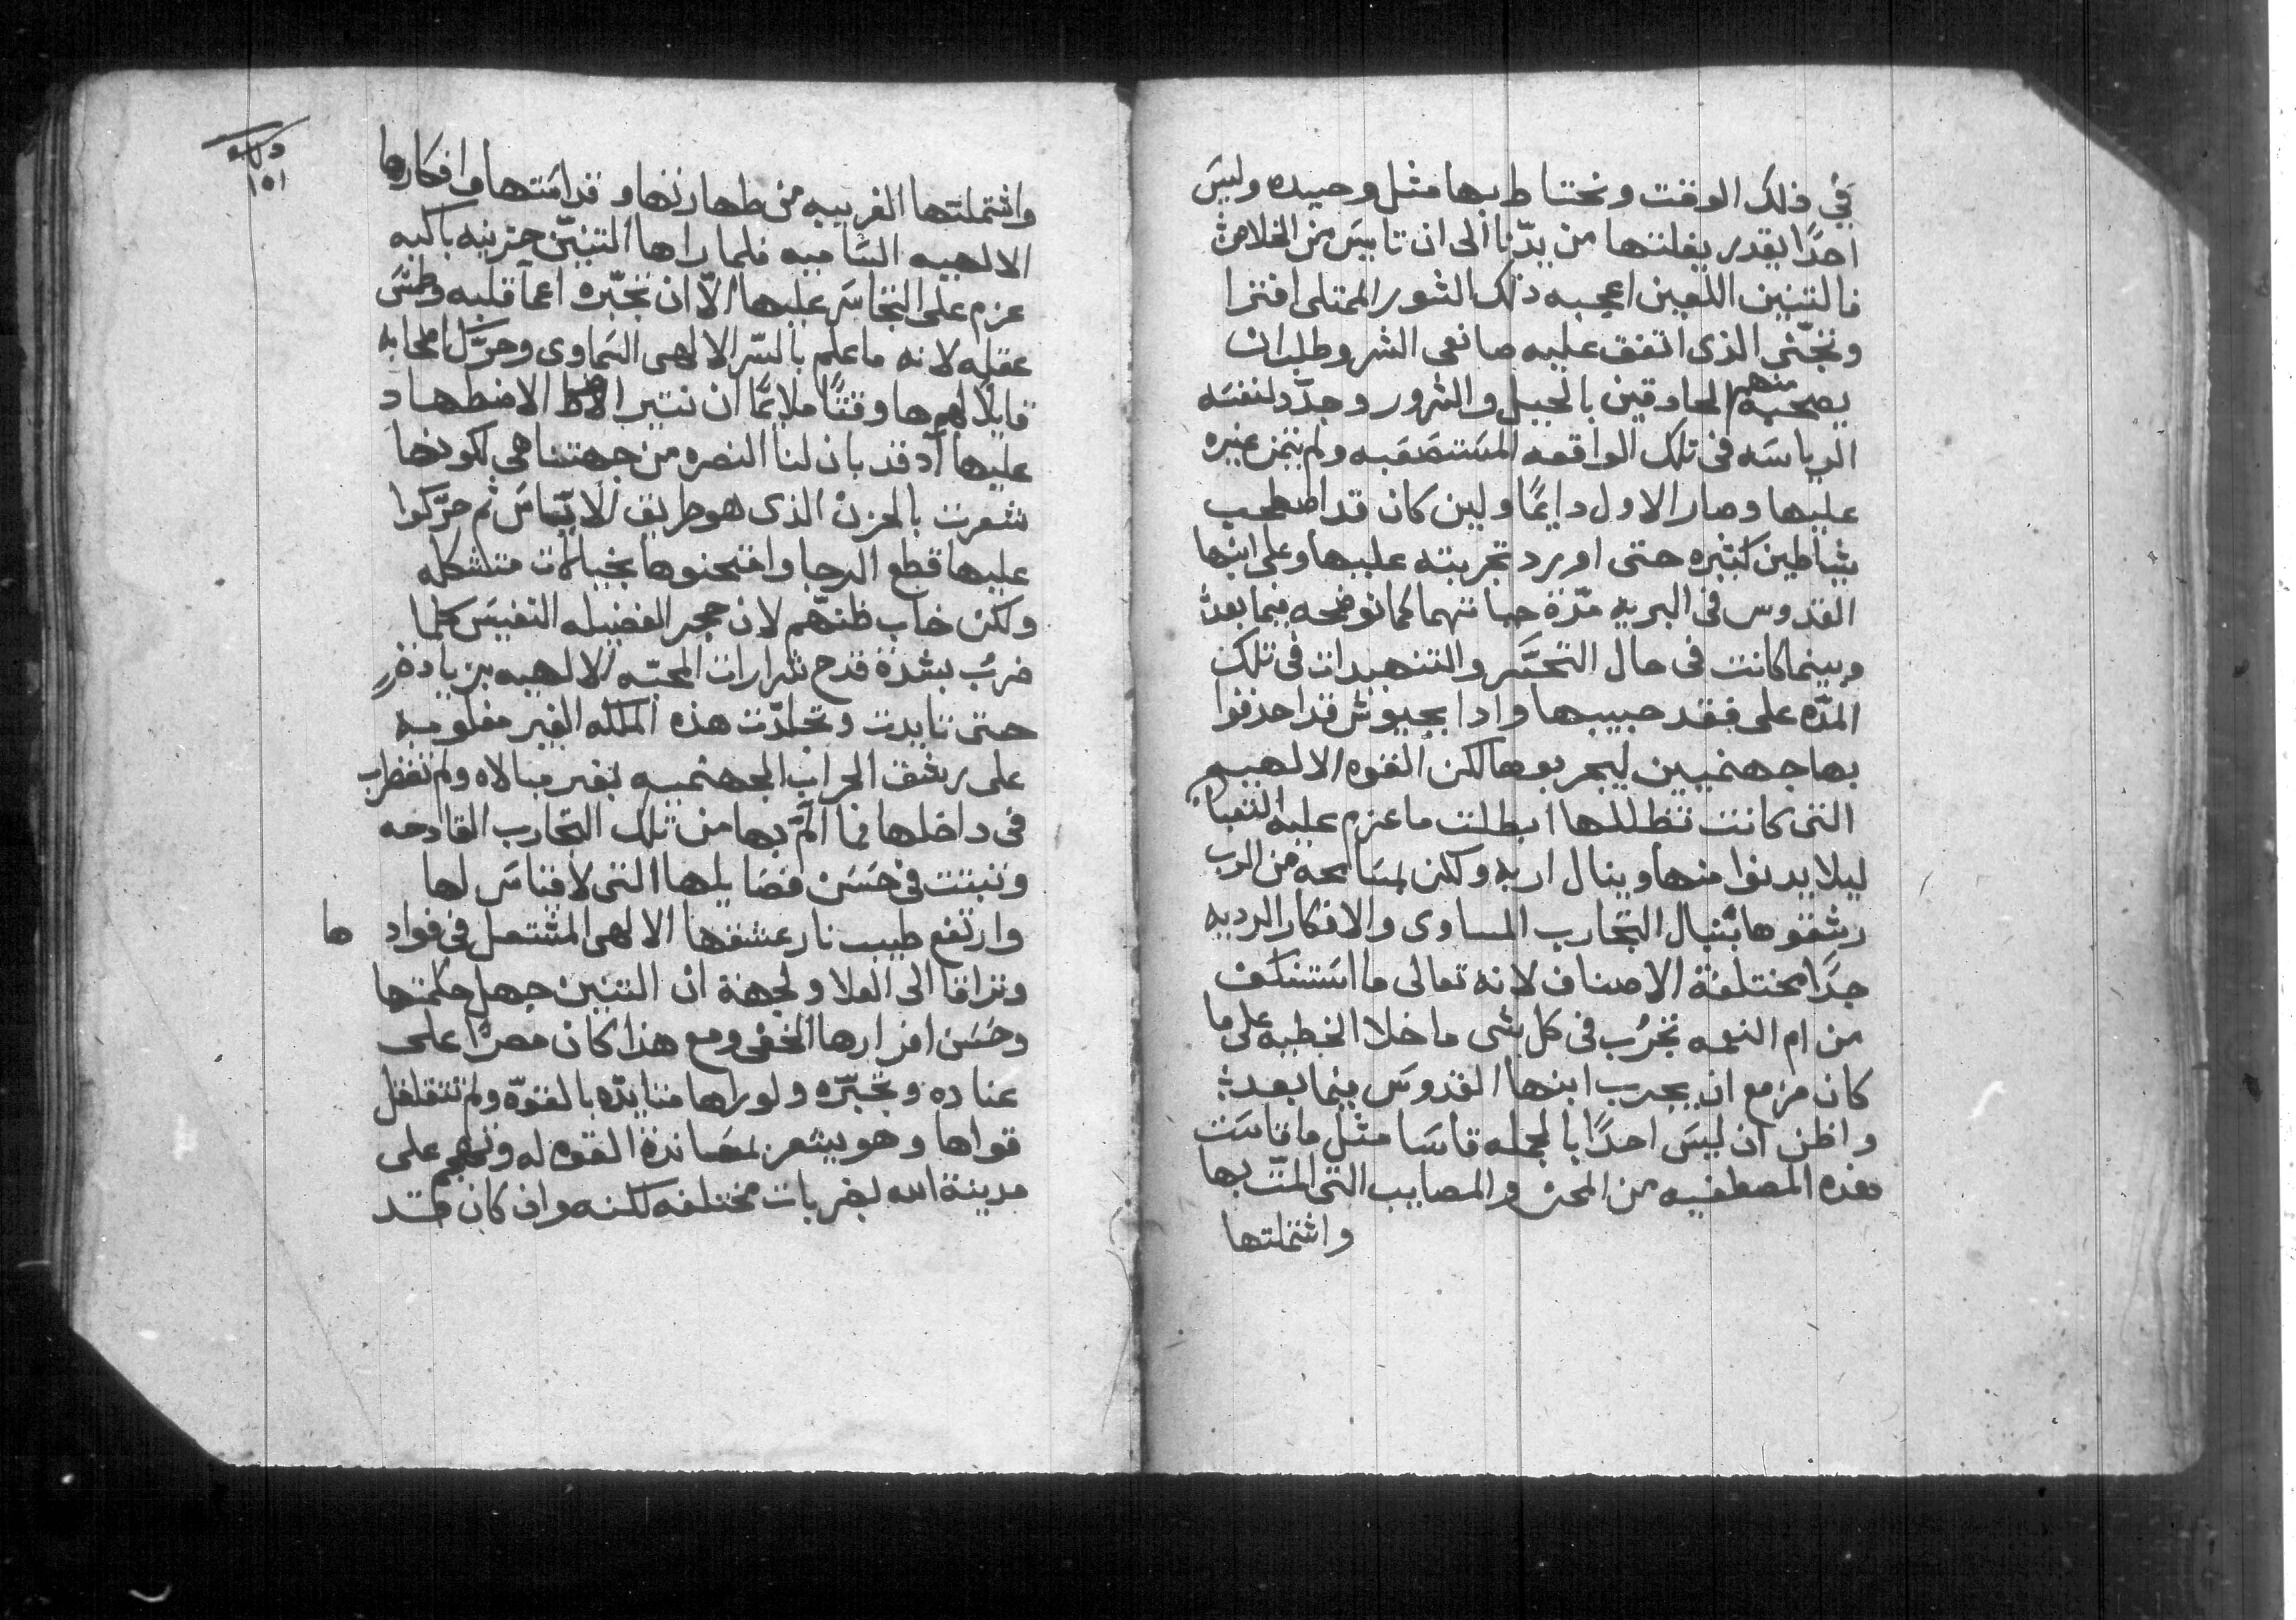 في ذلك الوقت ونحتاط بها مثل وحيده وليسَ
احدًا يقدر يفلتها من يدّنا الى ان تاييسَ من الخلاص
فالتنين اللعين اعجبه ذلك الشور الممتلى افترا
وتجنّى الذى اتفق عليه صانعى الشر وطلب ان
يصحبه منهم الحادقين بالحيل والشرور وجدّد لنفسَه
الرياسَه فى تلك الواقعه المسَتصعَبه ولم يتمن غيره
عليها وصار الاول دايمًا ولين كان قد اصطحب
شياطين كتيره حتى اورد تجربته عليها وعلى ابنها
القدوس فى البريه مدّة حياتهما كما نوضحه فيما بعد
وبينما كانت فى حال التحسَّر والتنهيدات فى تلك
المدّه على فقد حبيبها وادا بجيوش قد احدقوا
بها جهنميين ليجربوها لكن القوه الالهيه
التى كانت تظللها ابطلت ما عزم عليه التعبان
ليلا يدنوا منها وينال اربه ولكن لمسَامحه من الرب
رشقوها بنبال التجارب المساوى والافكار الرديه
جدًا مختلفة الاصناف لانه تعالى ما اسَتنكف
من ام النعمه تجرُب فى كل شى ما خلا الخطيه على ما
كان مزمع ان يجرب ابنها القدوسَ فيما بعد
واظن ان ليسَ احدًا بالجمله قاسَا مثل ما قاسَت
هذه المصطفيه من المحن والمصايب التى المّت بها
واشتملتها
١٥١
واشتملتها الغريبه من طهارتها وقداسَتها وافكارها
الالهيه السَّاميه فلما راها التنيّن حزينه باكيه
عزم على التجاسَر عليها الّا ان تجبّره اعما قلبه وطمسَ
عقله لانه ما علم بالسّر الالهى السَماوى وحرَّك اصحابه
قايلًا لهم ها وقتًا ملايمًا ان نتير الاضطهاد
عليها اد قد بان لنا النصره من جهتنا هى لكونها
شعرت بالحزن الذى هو طريق الاتّياسَ ثم حرَّكوا
عليها قطع الرجا وامتحنوها بخيالات متشكله
ولكن خاب ظنّهم لان حجر الفضيله النفيسَ كلما
ضربُ بشدة قدح شرارات المحبّه الالهيه بزيادة
حتى تايدت وتجلدّت هذه الملكه الغير مغلوبه
على رشق الحراب الجهنميه بغير مبالاه ولم تضطرب
فى داخلها مما المَّ بها من تلك التجارب القادحه
وتبتت فى حسَن فضايلها التى لا قياسَ لها
وارتفع طيب نار عشقها الالهى المشتعل فى فوادها
وتراقا الى العلا ولجهة ان التنين جهل حكمتها
وحسَن افرازها الخفى ومع هذا كان مصرًا على
عناده وتجبّره ولو راها متايدّه بالقوّه ولم تتقلقل
قواها وهو يشعر بمسَاندة القوه له وتهجم على
مدينة الله بضربات مختلفه لكنه وان كان قد